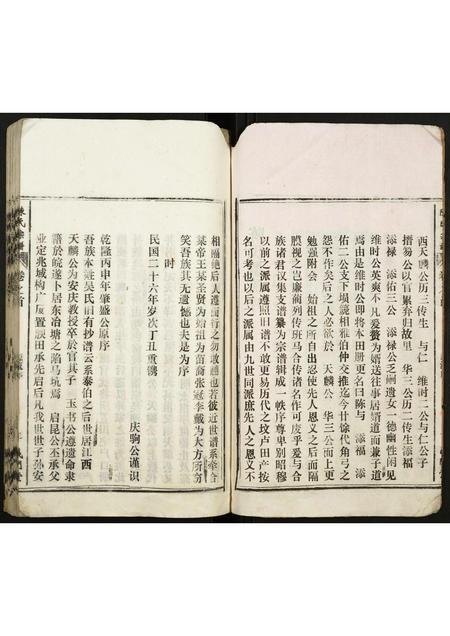 西天麟公历三传生 与仁 维时二公与仁公子
搢易公以官累弃归故里 华三公历二传生添福
添禄 添佑三公 添禄公乏嗣遗女一德幽性闲见
维时公英爽不凡爱赘为婿送往事居婿道而兼子道
焉由是维时公即将本田册更名曰陈与 添福 添
佑二公支下埙篪相雅怡伯仲交推迄今廿馀代角弓之
怨不作矣后之人必欲於 天麟公 华三公而上更
勉强附会 始祖之所自出忍使先人恩义之后而隔
膜视之岂廉蔺列传班马合传诸名作可废乎爰与合
族诸君议集支谱纂为宗谱辑成一帙序尊卑别昭穆
以前之派属遵照旧谱不敢更易历代之坟卢田产按
名可考也以后之派属由九世同派庶先人之恩义不
相湮绝后人遵而行之勿敢越也若彼近世谱系牵合
某帝王某圣贤为始祖为苗裔张冠李戴为大方所窃
笑吾族其无遗憾也夫是为序
时
民国二十六年岁次丁丑重镌
庆驹公谨识
乾隆丙申年肇盛公原序
吾族本延吴氏旧有抄谱云系泰伯之后世居江西
天麟公为安庆教授卒於官其子 玉书公遵遗命隶
籍於皖遂卜居东冶塘之陷马坑焉 启昆公丕承父
业定兆城构广厦置腴田承先启后凡我世世子孙安